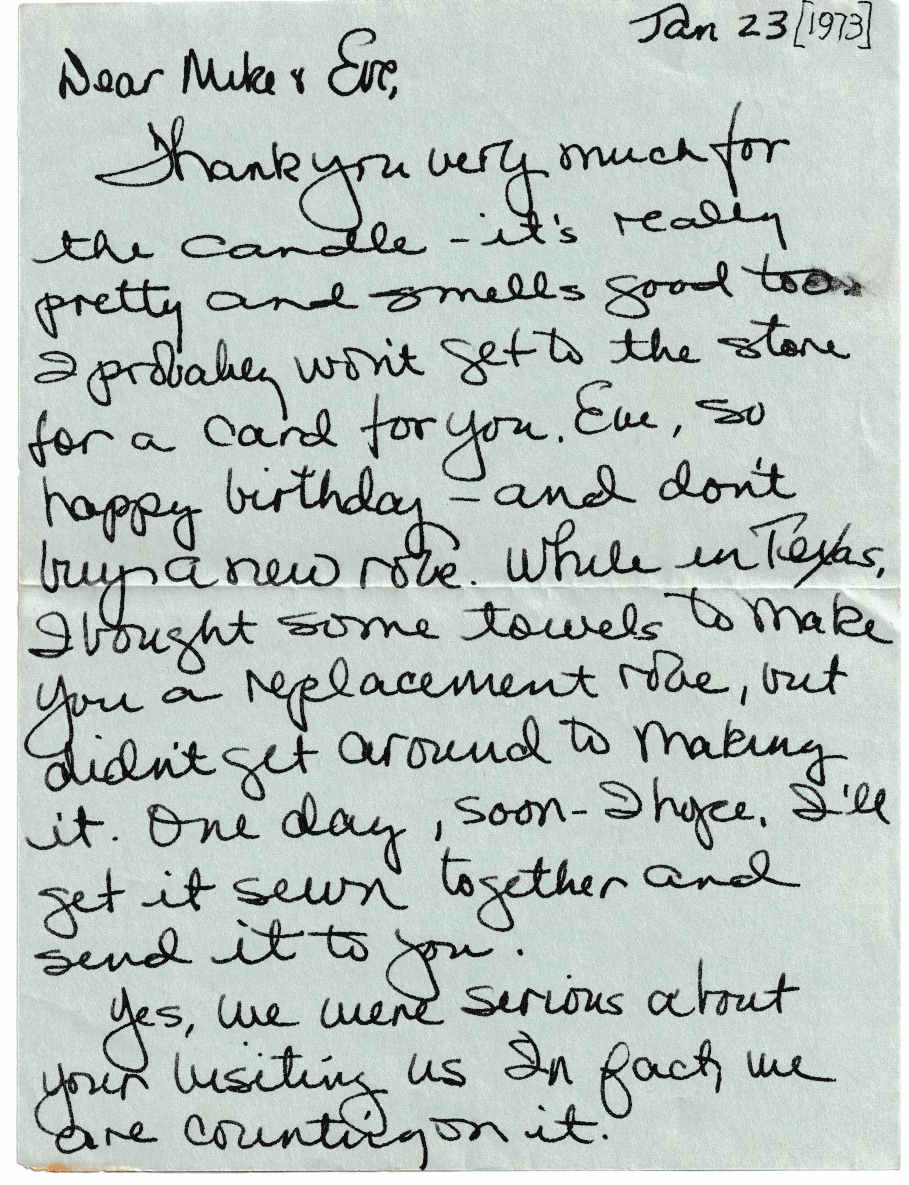 Jan 23 [1973]
Dear Mike & Eve,
Thank you very much for
the candle - it's really
pretty and smells good too
I probably won't get to the store
for a card for you, Eve, so
happy birthday - and don't
buy a new robe. While in Texas,
I bought some towels to make
you a replacement robe, but
didn't get around to making
it. One day, soon - I hope, I'll
get it sewn together and
send it to you.
Yes, we were serious about
your visiting us In fact, we
are counting on it.